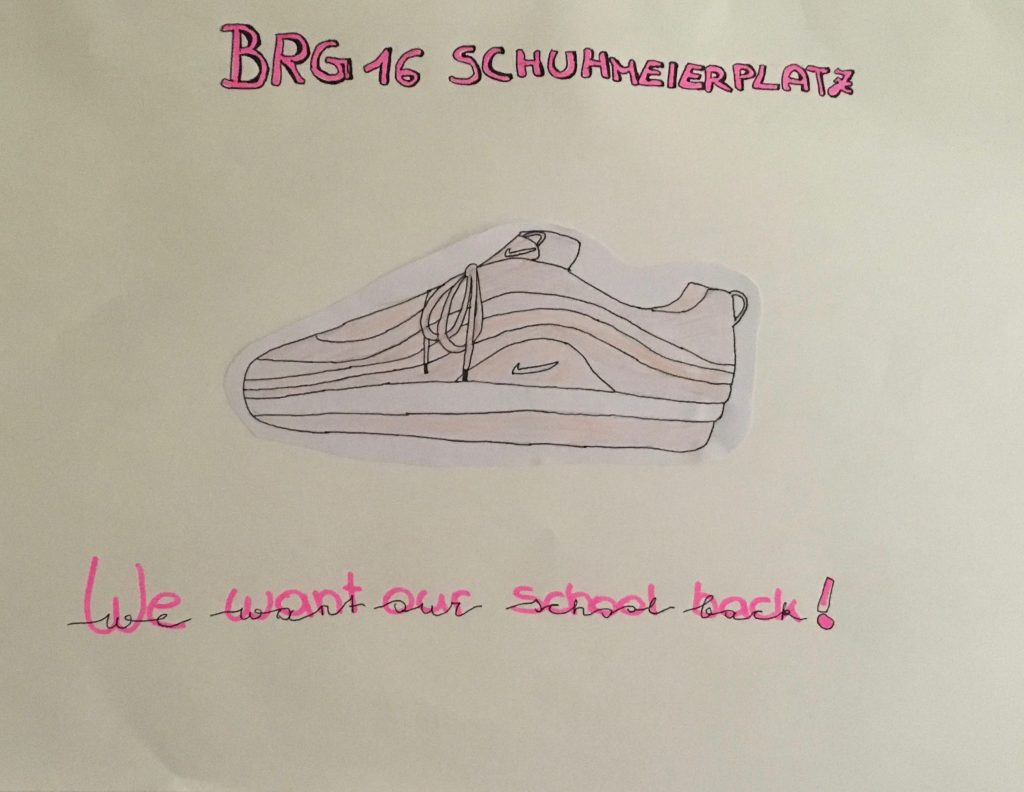 BRG 16 SCHUHMEIERPLATZ
We want our school back!